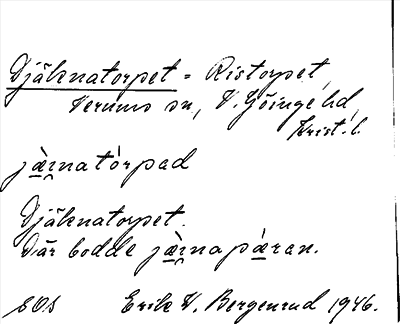 Djäknatorpet = Ristorpet,
Verums sn, V. Göinge hd,
Krist. l.
jæ̀ɪnatórpad
Djäknatorpet.
Där bodde jæ̀ɪnapǽran.
SOS Erik V. Bergenrud 1946.